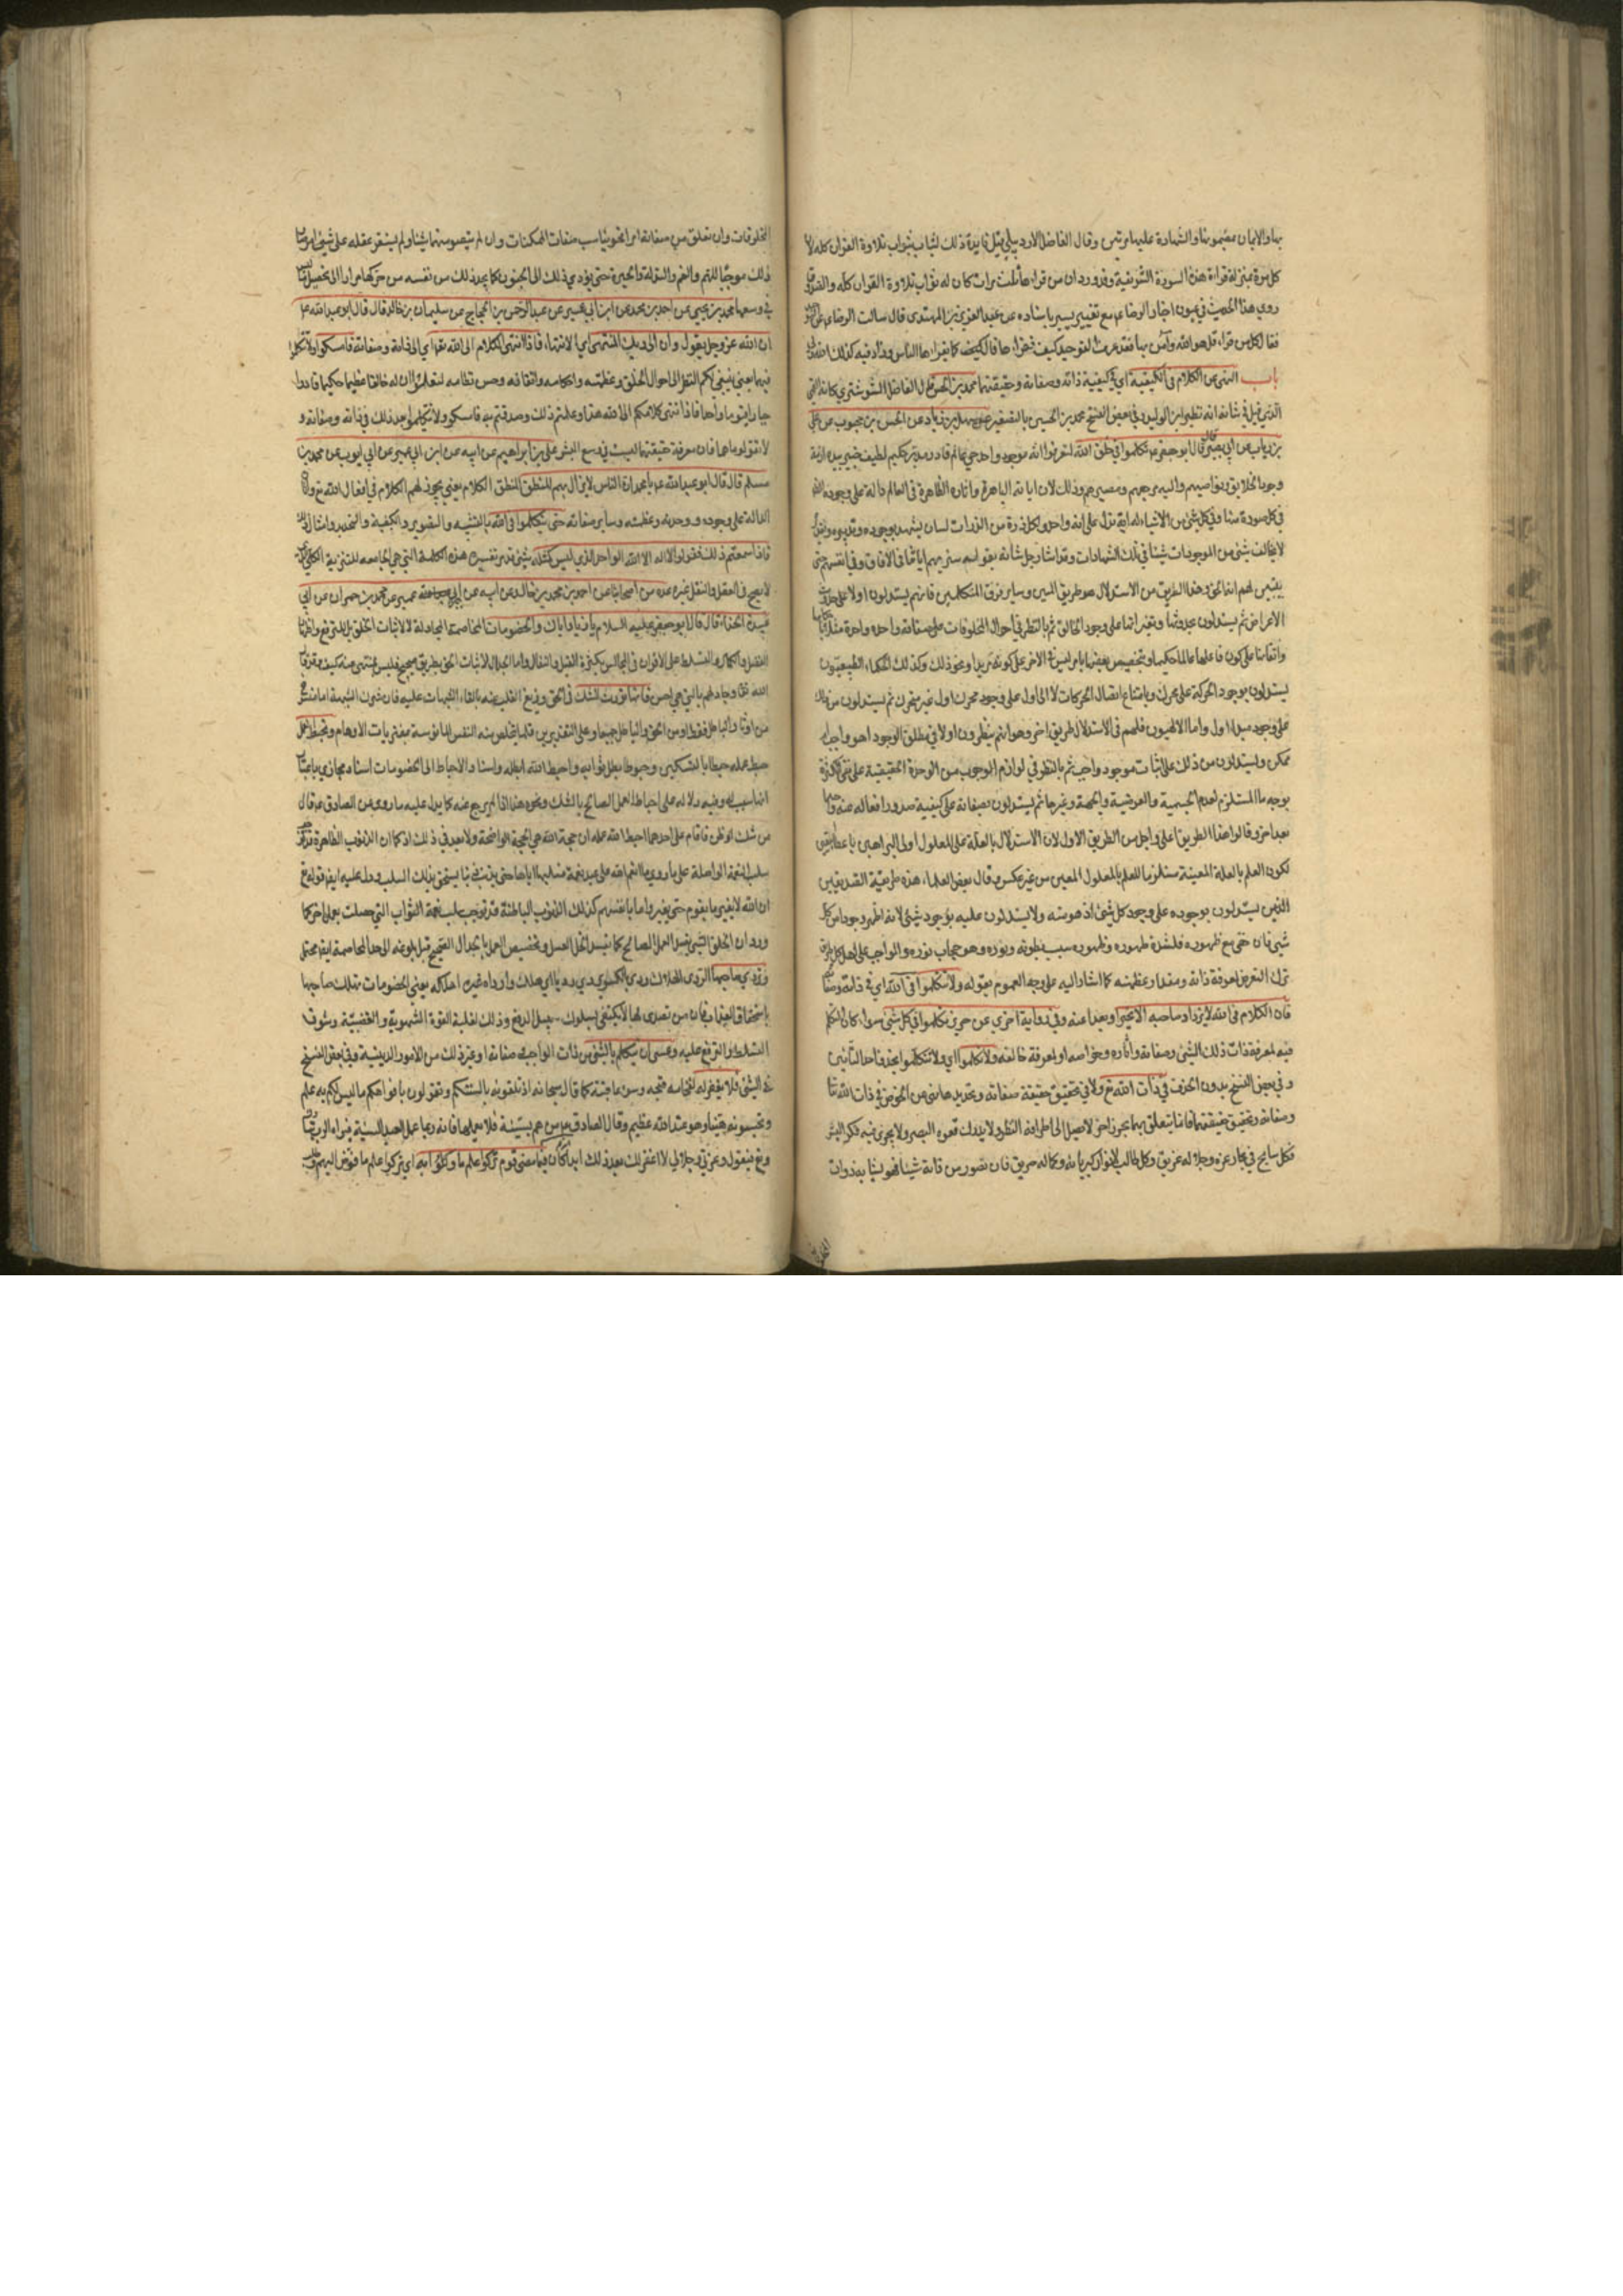 بها والايمان بمضمونها والشهادة عليها مرتين وقال الفاضل الاردبيلي قيل فايدة ذلك ليثاب بثواب تلاوة القران كله لان
كل مرة بمنزلة قراءة هذه السورة الشريفة وقد ورد ان من قراها ثلث مرات كان له ثواب تلاوة القران كله والصدوق
روى هذا الحديث في عيون اخبار الرضا ع مع تغيير يسير باسناده عن عبد العزيز بن المهتدي قال سالت الرضا ع عن
فقال كل من قراء قل هو الله وآمن بها فقد عرف التوحيد كيف نقراها قال كيف كما يقراها الناس وزاد فيه كذلك الله
باب النهي عن الكلام في الكيفية اي في كيفية ذاته وصفاته وحقيقتها محمد بن الحسن قال الفاضل الشوشتري كانه
الذي قيل في شانه انه نظير ابن الوليد وفي بعض النسخ محمد بن الحسين بالتصغير عن سهل بن زياد عن الحسن بن محبوب عن علي
بن رياب عن ابي بصير قال قال ابو جعفر ع تكلموا في خلق الله لتعرفوا انه موجود واحد حي عالم قادر مدبر حكيم لطيف خبير بيده ازمة
وجود الخلايق ونواصيهم واليه مرجعهم ومصيرهم وذلك لان اياته الباهرة واثاره الظاهرة في العالم دالة على وجوده
في كل صورة منها وفي كل شيء من الاشياء له اية تدل على انه واحد ولكل ذرة من الذرات لسان يشهد بوجوده
لا يخالف شيء من الموجودات شيئا في تلك الشهادات وقد اشار جل شانه بقوله سنريهم اياتنا في الافاق وفي انفسهم حتى
يتبين لهم انه الحق وهذا الطريق من الاستدلال هو طريق المليين وساير فرق المتكلمين فانهم يستدلون اولا على حدوث
الاعراض ثم يستدلون بحدوثها وتغيراتها على وجود الخالق ثم بالنظر في احوال المخلوقات على صفاته واحدة واحدة مثلا
واتقانها على كون فاعلها عالما حكيما وتخصيص بعضها بامر ليس في الاخر على كونه مريدا ونحو ذلك وكذلك الحكماء الطبيعيون
يستدلون بوجود الحركة على محرك وبامتناع اتصال الحركات لا الى اول على وجود محرك اول غير متحرك ثم يستدلون من ذلك
على وجود مبدا اول واما الالهيون فلهم في الاستدلال طريق اخر وهو انهم ينظرون اولا في مطلق الوجود اهو واجب او
ممكن ويستدلون من ذلك على اثبات موجود واجب ثم بالنظر في لوازم الوجوب من الوحدة الحقيقية على نفي الكثرة
بوجه ما المستلزم لعدم الجسمية والعرضية والجهة وغيرها ثم يستدلون بصفاته على كيفية صدور افعاله عنه واحدا
بعد اخر وقالوا هذا الطريق اعلى واجل من الطريق الاول لان الاستدلال بالعلة على المعلول اولى البراهين باعطاء اليقين
لكون العلم بالعلة المعينة مستلزما للعلم بالمعلول المعين من غير عكس وقال بعض العلماء هذه طريقة الصديقين
الذين يستدلون بوجوده على وجود كل شيء اذ هو منه ولا يستدلون عليه بوجود شيء لانه اظهر وجودا من كل
شيء فان خفي مع ظهوره فلشدة ظهوره وظهوره سبب بطونه ونوره هو حجاب نوره والواجب على اهل كل
ترك التعرض لمعرفة ذاته ومقدار عظمته كما اشار اليه على وجه العموم بقوله ولا تتكلموا في الله اي في ذاته وصفاته
فان الكلام في الله لا يزداد صاحبه الا تحيرا وبعدا عنه وفي رواية اخرى عن حريز تكلموا في كل شيء سواء كان التكلم
فيه لمعرفة ذات ذلك الشيء وصفاته واثاره وخواصه او لمعرفة خالقه ولا تكلموا اي ولا تتكلموا بحذف احد التائين
وفي بعض النسخ بدون الحذف في ذات الله تع ولا في تحقيق حقيقة صفاته وتحديدها نهى عن الخوض في ذات الله تعالى
وصفاته وتحقيق حقيقتهما فان ما يتعلق بهما بحر زاخر لا يصل الى اطرافه النظر ولا يدرك قعره البصر ولا يجري فيه فكر البشر
فكل سابح في بحار عزه وجلاله غريق وكل طالب لانوار كبريائه وكماله حريق فان تصور من ذاته شيئا فهو يشابه ذوات
المخلوقات وان تعلق من صفاته امرا فهو يناسب صفات الممكنات وان لم يتصور منهما شيئا ولم يستقر عقله على شيء
ذلك موجبا للهم والغم والتوله والحيرة حتى يؤدي ذلك الى الجنون كما يجد ذلك من نفسه من حركها مرارا الى تحصيل ما ليس
في وسعها محمد بن يحيى عن احمد بن محمد عن ابن ابي عمير عن عبد الرحمن بن الحجاج عن سليمان بن خالد قال قال ابو عبد الله ع
ان الله عز وجل يقول وان الى ربك المنتهى اي الانتهاء فاذا انتهى الكلام الى الله تعالى اي الى ذاته وصفاته فامسكوا ولا تتكلموا
فيهما يعني ينبغي لكم النظر الى احوال الخلق وعظمته واحكامه واتقانه وحسن نظامه لتعلموا ان له خالقا عظيما حكيما قادرا
جبارا قيوما واحدا فاذا انتهى كلامكم الى الله هذا وعلمتم ذلك وصدقتم به فامسكوا ولا تتكلموا بعد ذلك في ذاته وصفاته و
لا تقولوا ما هما فان معرفة حقيقتهما ليست في وسع البشر علي بن ابراهيم عن ابيه عن ابن ابي عمير عن ابي ايوب عن محمد بن
مسلم قال قال ابو عبد الله ع يا محمد ان الناس لا يزال بهم المنطق المنطق الكلام يعني يجوز لهم الكلام في افعال الله تع واثاره
الدالة على وجوده ووحدته وعظمته وساير صفاته حتى يتكلموا في الله بالتشبيه والتصوير والكيفية والتحديد وامثال ذلك
فاذا سمعتم ذلك فقولوا لا اله الا الله الواحد الذي ليس كمثله شيء قد مر تفسير هذه الكلمة التي هي الجامعة للتنزيه الكلي
لا يصح في العقل والنقل غيره عدة من اصحابنا عن احمد بن محمد بن خالد عن ابيه عن ابن ابي عمير عن محمد بن حمران عن ابي
عبيدة الحذاء قال قال ابو جعفر عليه السلام يا زياد اياك والخصومات المخاصمة المجادلة لا لاثبات الحق بل للترفع واظهار
الفضل والكمال والتسلط على الاقران في المجالس بكثرة القيل والقال واما الجدال لاثبات الحق بطريق صحيح فليس بمنهي عنه كيف وقد قال
الله تعالى وجادلهم بالتي هي احسن فانها تورث الشك في الحق وزيغ القلب عنه بالقاء الشبهات عليه فان شوب الشبهة اما
من اوثار الباطل فقط او من الحق والباطل جميعا وعلى التقديرين قلما يتخلص منه النفس المانوسة بمفتريات الاوهام وتحبط العمل
حبط عمله حبطا بالتسكين وحبوطا بطل ثوابه واحبطه الله ابطله واسناد الاحباط الى الخصومات اسناد مجازي باعتبار
انها سبب له وفيه دلالة على احباط العمل الصالح بالشك ونحوه هذا اذا لم يرجع عنه كما يدل عليه ما روي عن الصادق ع قال
من شك او ظن فاقام على احدهما احبط الله عمله ان حجة الله هي الحجة الواضحة ولا بعد في ذلك اذ كما ان الذنوب الظاهرة
سلب النعمة الواصلة على ما روي ما انعم الله على عبد نعمة فسلبها اياه حتى يذنب ذنبا يستحق بذلك السلب ودل عليه ايضا قوله تع
ان الله لا يغير ما بقوم حتى يغيروا ما بانفسهم كذلك الذنوب الباطنة قد توجب سلب نعمة الثواب التي حصلت بعمل اخر كما
ورد ان الخلق السيئ يفسد العمل الصالح كما يفسد الخل العسل وتخصيص العمل بالجدال القبيح قبل بلوغه الى حد المخاصمة ايضا محتمل
وتردي صاحبها الردى الهلاك ردي بالكسر يردي ردى اي هلك وارداه غيره اهلكه يعني الخصومات تهلك صاحبها
باستحقاق العذاب فان من تصدى لها لا يكتفي بسلوك سبيل الدفع وذلك لغلبة القوة الشهوية والغضبية وشوق
التسلط والترفع عليه وعسى ان يتكلم بالشيء من ذات الواجب او صفاته او غير ذلك من الامور الدينية وفي بعض النسخ
في الشيء فلا يغفر له لفخامة قبحه وسوء عاقبته كما قال سبحانه اذ تلقونه بالسنتكم وتقولون بافواهكم ما ليس لكم به علم
وتحسبونه هينا وهو عند الله عظيم وقال الصادق ع من هم بسيئة فلا يعملها فانه ربما عمل العبد السيئة فيراه الرب
وتع فيقول وعزتي وجلالي لا اغفر لك بعد ذلك ابدا انه كان فيما مضى قوم تركوا علم ما وكلوا به اي تركوا علم ما فوض اليهم